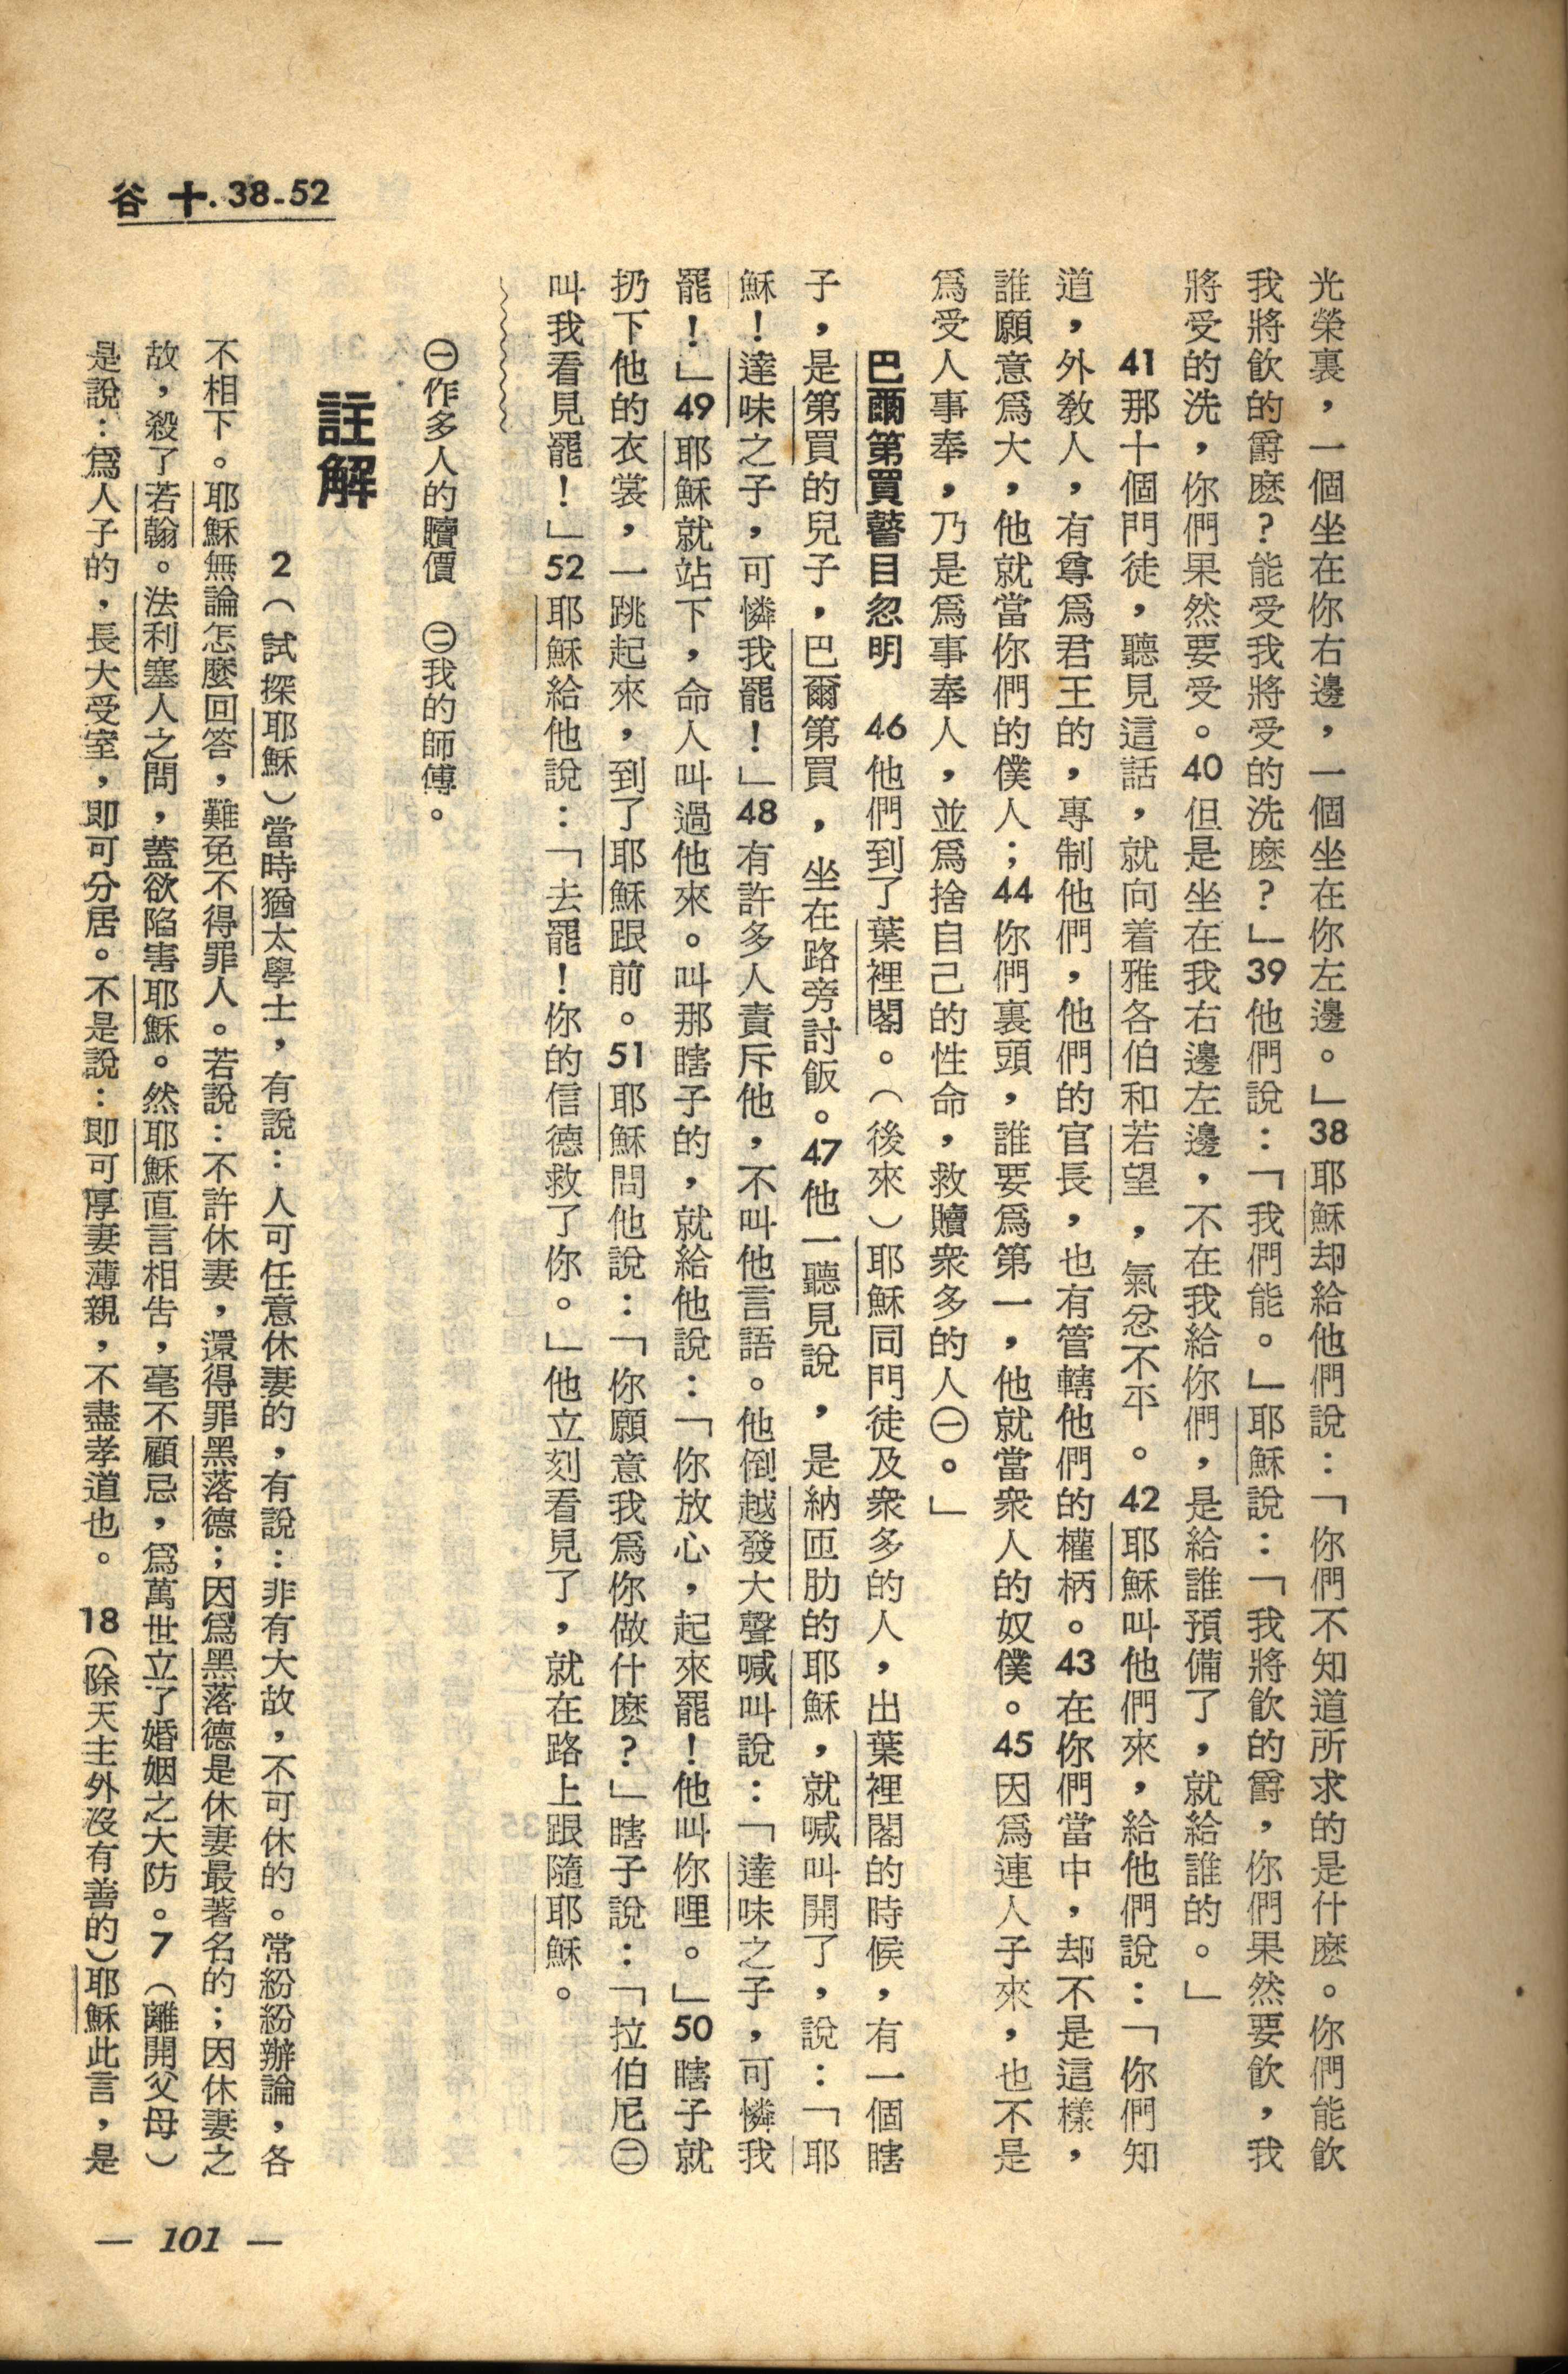 谷 十. 38-52
光榮裏，一個坐在你右邊，一個坐在你左邊。」38耶穌却給他們說：「你們不知道所求的是什麽。你們能飲
我將飲的爵麽？能受我將受的洗麽？」39他們說：「我們能。」耶穌說：「我將飲的爵，你們果然要飲，我
將受的洗，你們果然要受。40但是坐在我右邊左邊，不在我給你們，是給誰預備了，就給誰的。」
41那十個門徒，聽見這話，就向着雅各伯和若望，氣忿不平。42耶穌叫他們來，給他們說：「你們知
道，外敎人，有尊爲君王的，專制他們，他們的官長，也有管轄他們的權柄。43在你們當中，却不是這樣，
誰願意爲大，他就當你們的僕人；44你們裏頭，誰要爲第一，他就當衆人的奴僕。45因爲連人子來，也不是
爲受人事奉，乃是爲事奉人，並爲捨自己的性命，救贖衆多的人㊀。」
巴爾第買瞽目忽明　46他們到了葉裡閣。（後來）耶穌同門徒及衆多的人，出葉裡閣的時候，有一個瞎
子，是第買的兒子，巴爾第買，坐在路旁討飯。47他一聽見說，是納匝肋的耶穌，就喊叫開了，說：「耶
穌！達味之子，可憐我罷！」48有許多人責斥他，不叫他言語。他倒越發大聲喊叫說：「達味之子，可憐我
罷！」49耶穌就站下，命人叫過他來。叫那瞎子的，就給他說：「你放心，起來罷！他叫你哩。」50瞎子就
扔下他的衣裳，一跳起來，到了耶穌跟前。51耶穌問他說：「你願意我爲你做什麽？」瞎子說：「拉伯尼㊁
叫我看見罷！」52耶穌給他說：「去罷！你的信德救了你。」他立刻看見了，就在路上跟隨耶穌。
㊀作多人的贖價　㊁我的師傅。
註解
2（試探耶穌）當時猶太學士，有說：人可任意休妻的，有說：非有大故，不可休的。常紛紛辦論，各
不相下。耶穌無論怎麼回答，難免不得罪人。若說：不許休妻，還得罪黑落德；因爲黑落德是休妻最著名的；因休妻之
故，殺了若翰。法利塞人之問，蓋欲陷害耶穌。然耶穌直言相告，毫不顧忌，爲萬世立了婚姻之大防。7（離開父母）
是說：爲人子的，長大受室，即可分居。不是說：即可厚妻薄親，不盡孝道也。　18（除天主外沒有善的）耶穌此言，是
— 101 —